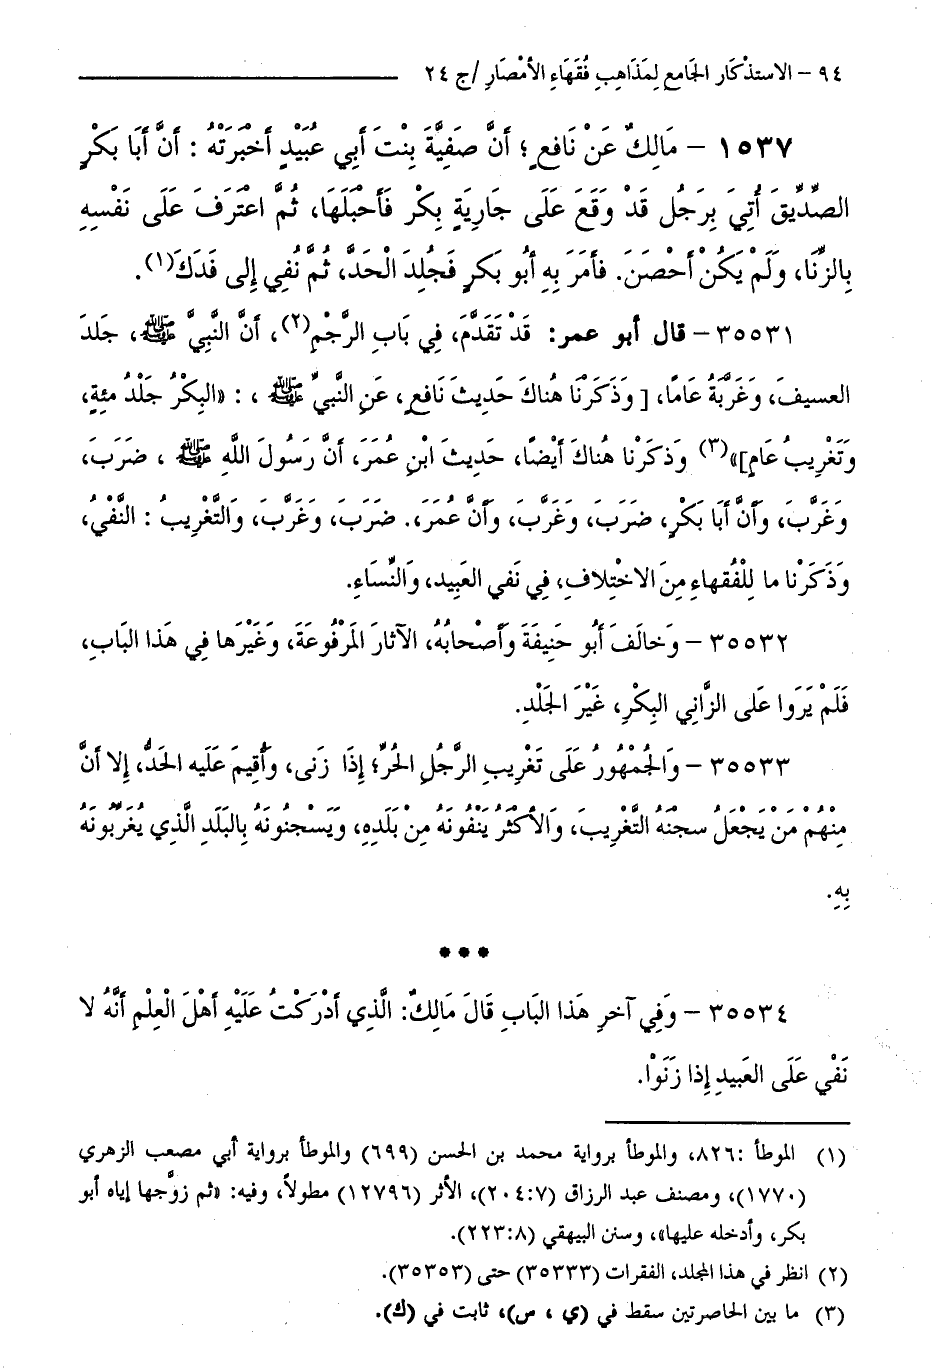 ٩٤ - الاستذْكَار الجَامع لِمَذَاهِبِ فُقَهَاءِ الأمْصَارِ /ج ٢٤
١٥٣٧ - مَالِكٌ عَنْ نَافعٍ ؛ أنَّ صَفِيَّةَ بِنْتَ أبِي عُبَيْدٍ أخْبَرَتْهُ : أنَّ أبَا بَكْرٍ
الصِّدِّيقَ أُتِيَ بِرَجُلٍ قَدْ وَقَعَ عَلَى جَارِيَةٍ بِكْرٍ فَأحْبَلَهَا، ثُمَّ اعْتَرَفَ عَلَى نَفْسِهِ
بِالزِّنَا، وَلَمْ يَكُنْ أحْصَنَ. فَأمَرَ بِهِ أبُو بَكرٍ فَجُلِدَ الْحَدَّ، ثُمَّ نُفِيَ إلى فَدَكَ(١).
٣٥٥٣١ - قال أبو عمر: قَدْ تَقَدَّمَ، فِي بَابِ الرَّجْمِ(٢)، أنَّ النَّبِيَّ ﷺ، جَلدَ
العسيفَ، وَغَرَّبَهُ عَامًا، [ وَذَكَرْنَا هُناكَ حَديثَ نَافعٍ، عَنِ النَّبيِّ ﷺ ، : «البكْرُ جَلدُ مئةٍ،
وَتَغْرِيبُ عَامٍ]»(٣) وَذكَرْنا هُنَاكَ أيْضًا، حَديثَ ابْنِ عُمَرَ، أنَّ رَسُولَ اللَّهِ ﷺ ، ضَرَبَ،
وَغَرَّبَ، وَأنَّ أبَا بَكْرٍ، ضَرَبَ، وَغَرَّبَ، وَأنَّ عُمَرَ،. ضَرَبَ، وَغَرَّبَ، وَالتَّغْرِيبُ : النَّفْيُ،
وَذَكَرْنا ما لِلْفُقهاءِ مِنَ الاخْتِلافِ، فِي نَفي العَبيدِ، وَالنِّسَاءِ.
٣٥٥٣٢ - وَخالَفَ أبُو حَنِيفَةَ وَأصْحابُهُ، الآثارَ المَرْفُوعَةَ، وَغَيْرَها فِي هَذَا البَابِ،
فَلَمْ يَرَوا عَلى الزَّانِي البِكْرِ، غَيْرَ الجَلْدِ.
٣٥٥٣٣ - وَالجُمْهُورُ عَلَى تَغْرِيبِ الرَّجُلِ الحُرِّ؛ إذَا زَنى، وَأُقيمَ عَلَيه الحَدُّ، إلا أنَّ
مِنْهُمْ مَنْ يَجْعَلُ سجنَهُ التَّغْرِيبَ، وَالأكْثَرُ يَنْفُونَهُ مِنْ بَلَدِهِ، وَيَسْجنُونَهُ بِالبَلَدِ الَّذي يُغَرِّبُونَهُ
بِهِ.
***
٣٥٥٣٤ - وَفِي آخرِ هَذا البَابِ قَالَ مَالِكٌ: الَّذي أدْرَكْتُ عَلَيْهِ أهْلَ الْعِلْمِ أنَّهُ لا
نَفْي عَلَى العَبيدِ إذا زَنَوْا.
(١) الموطأ :٨٢٦، والموطأ برواية محمد بن الحسن (٦٩٩) والموطأ برواية أبي مصعب الزهري
(١٧٧٠)، ومصنف عبد الرزاق (٢٠٤:٧)، الأثر (١٢٧٩٦) مطولاً، وفيه: «ثم زوَّجها إياه أبو
بكر، وأدخله عليها»، وسنن البيهقي (٢٢٣:٨).
(٢) انظر في هذا المجلد، الفقرات (٣٥٣٣٣) حتى (٣٥٣٥٣).
(٣) ما بين الحاصرتين سقط في (ي ، ص)، ثابت في (ك).